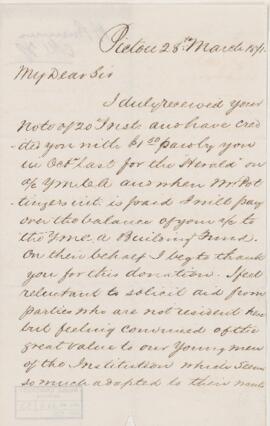 Pictou 28th March 1871
My Dear Sir
I duly received your
Note of 20th Inst. and have cred
ited you with $1.50 paid by you
in Octr Last for the Herald on
a/c Y.m.C.A and when Mr Pot
tinger's is paid I will pay
over the balance of your a/c to
the Y.m.C.a Building Fund.
On their behalf I beg to thank
you for this donation. I feel
reluctant to solicit aid from
parties who are not resident here
but feeling convinced of the
great value to our Young men
of the Institution which seems
so much adapted to their wants